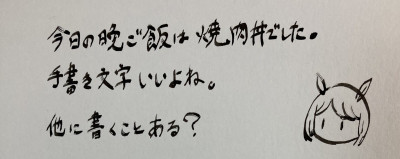 今日の晩ご飯は焼肉丼でした。
手書き文字いいよね。
他に書くことある？